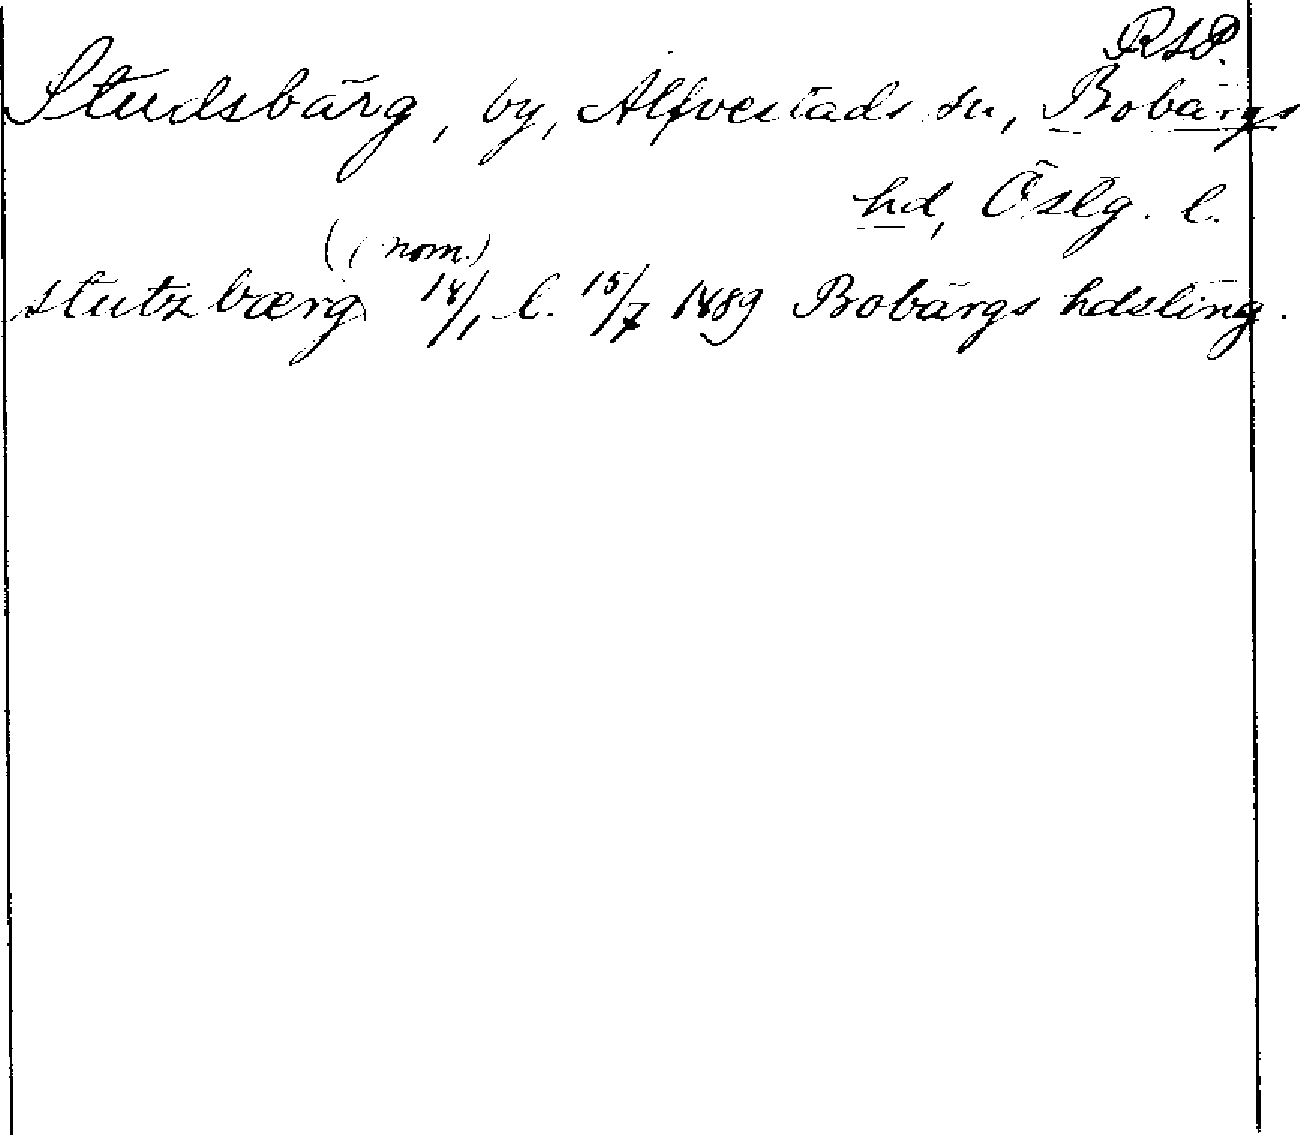 RSP.
Studsbärg, by, Alfvestads sn, Bobärgs
hd, Östg. l.
(i nom.)
stutzbærg 14/1 l. 15/7 1489 Bobärgs hdsting.